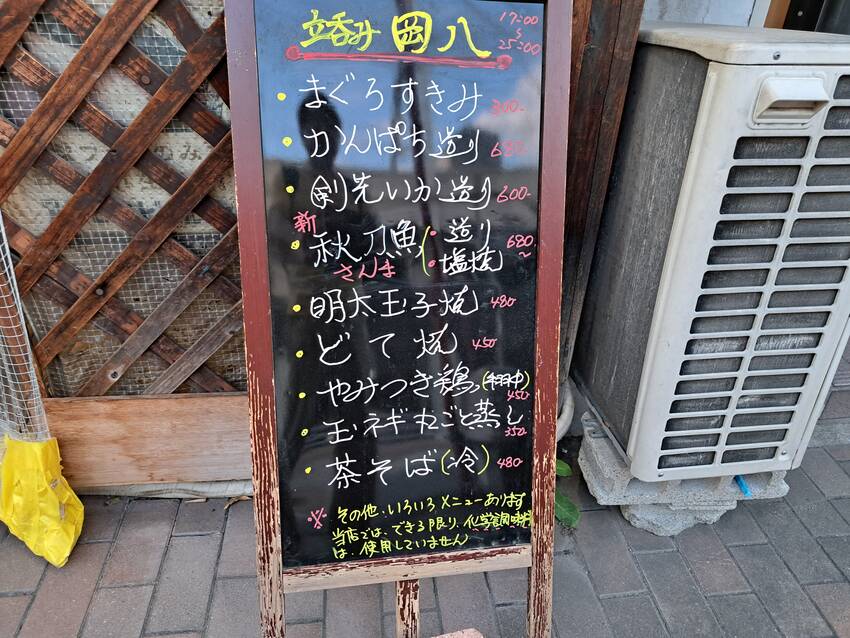 立呑み 岡八 17:00
〜
25:00
・まぐろすきみ 300-
・かんぱち造り 680-
・剣先いか造り 600-
新
・秋刀魚 ・造り 680.〜
さんま ・塩焼
・明太玉子焼 480
・どて焼 450
・やみつき鶏 (手羽中) 450
・玉ネギ丸ごと蒸し 350
・茶そば(冷) 480
※ その他、いろいろメニューあります
当店では、できる限り、化学調味料
は、使用していません